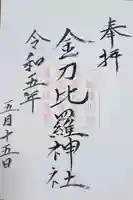 奉拝
金刀比羅神社
令和五年
五月十五日